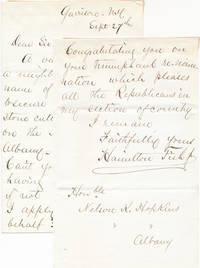 Garrisons. N.Y.
Sept 27th
Dear Sir
a neighb
name of
secure
stone cutt
on the
Albany
Can't yo
having
if not
I apply
behalf
Congratulating you on
your triumphant renomi
nation which pleases
all the Republicans in
my section of country
I remain
Faithfully Yours
Hamilton Fish
Honble
Nelson K. Hopkins
" "
Albany